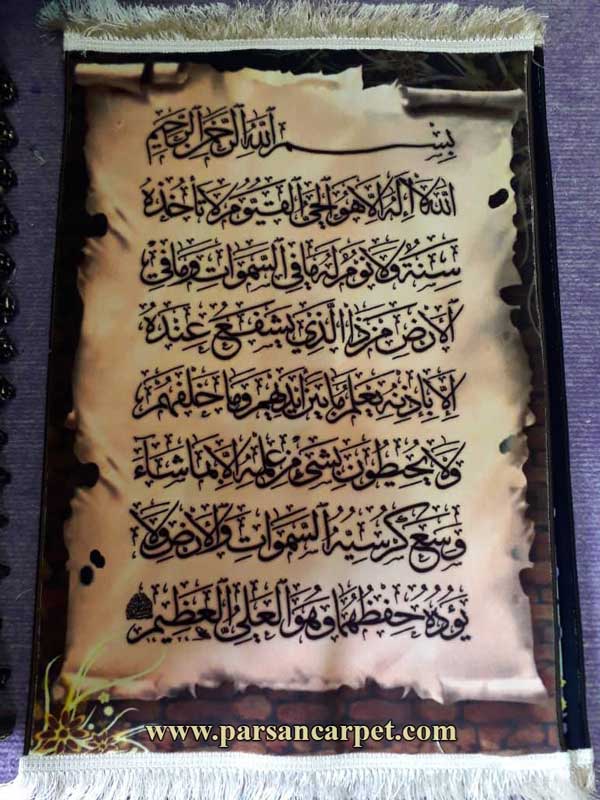 بسم الله الرحمن الرحيم
الله لا إله إلا هو الحي القيوم لا تأخذه
سنة ولا نوم له ما في السموات وما في
الأرض من ذا الذي يشفع عنده
إلا بإذنه يعلم ما بين أيديهم وما خلفهم
ولا يحيطون بشئ من علمه إلا بما شاء
وسع كرسيه السموات والأرض ولا
يؤده حفظهما وهو العلي العظيم
www.parsancarpet.com